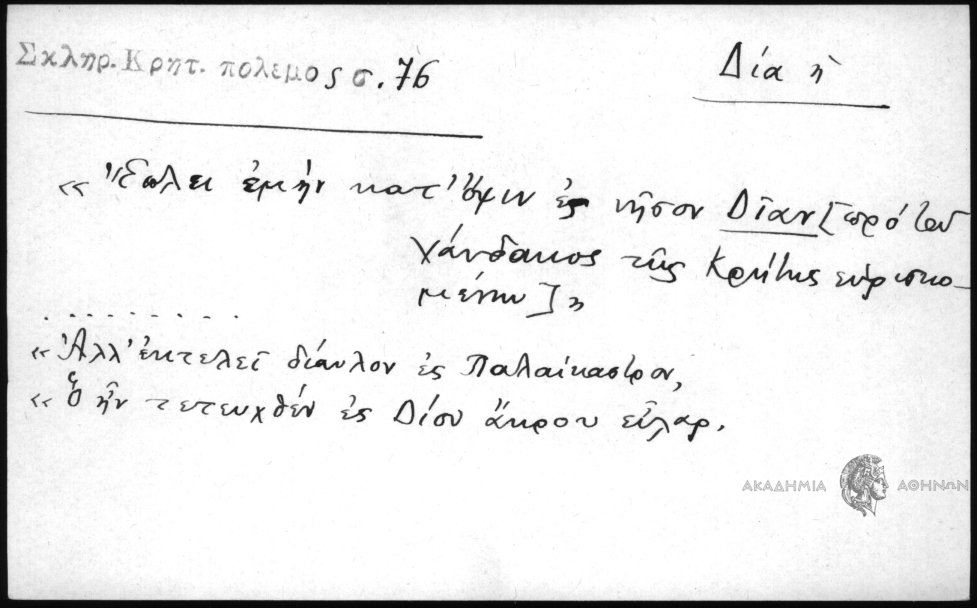 Σκληρ. Κρητ. πόλεμος σ. 76
Δία ἡ
« Ἔπλει ἐμὴν κατ' ὄψιν ἐς νῆσον Δῖαν [πρὸ τοῦ
Χάνδακος τῆς Κρήτης εὑρισκο-
μένην] »
. . . . . . . . .
« Ἀλλ' ἐκτελεῖ δίαυλον ἐς Παλαίκαστρον,
« Ὃ ἦν τετευχθέν ἐς Δίου ἄκρου εἶλαρ.
ΑΚΑΔΗΜΙΑ ΑΘΗΝΩΝ